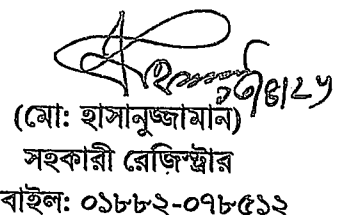 (মো: হাসানুজ্জামান)
সহকারী রেজিস্ট্রার
বাইল: ০১৮৮২-০৭৮৫১২